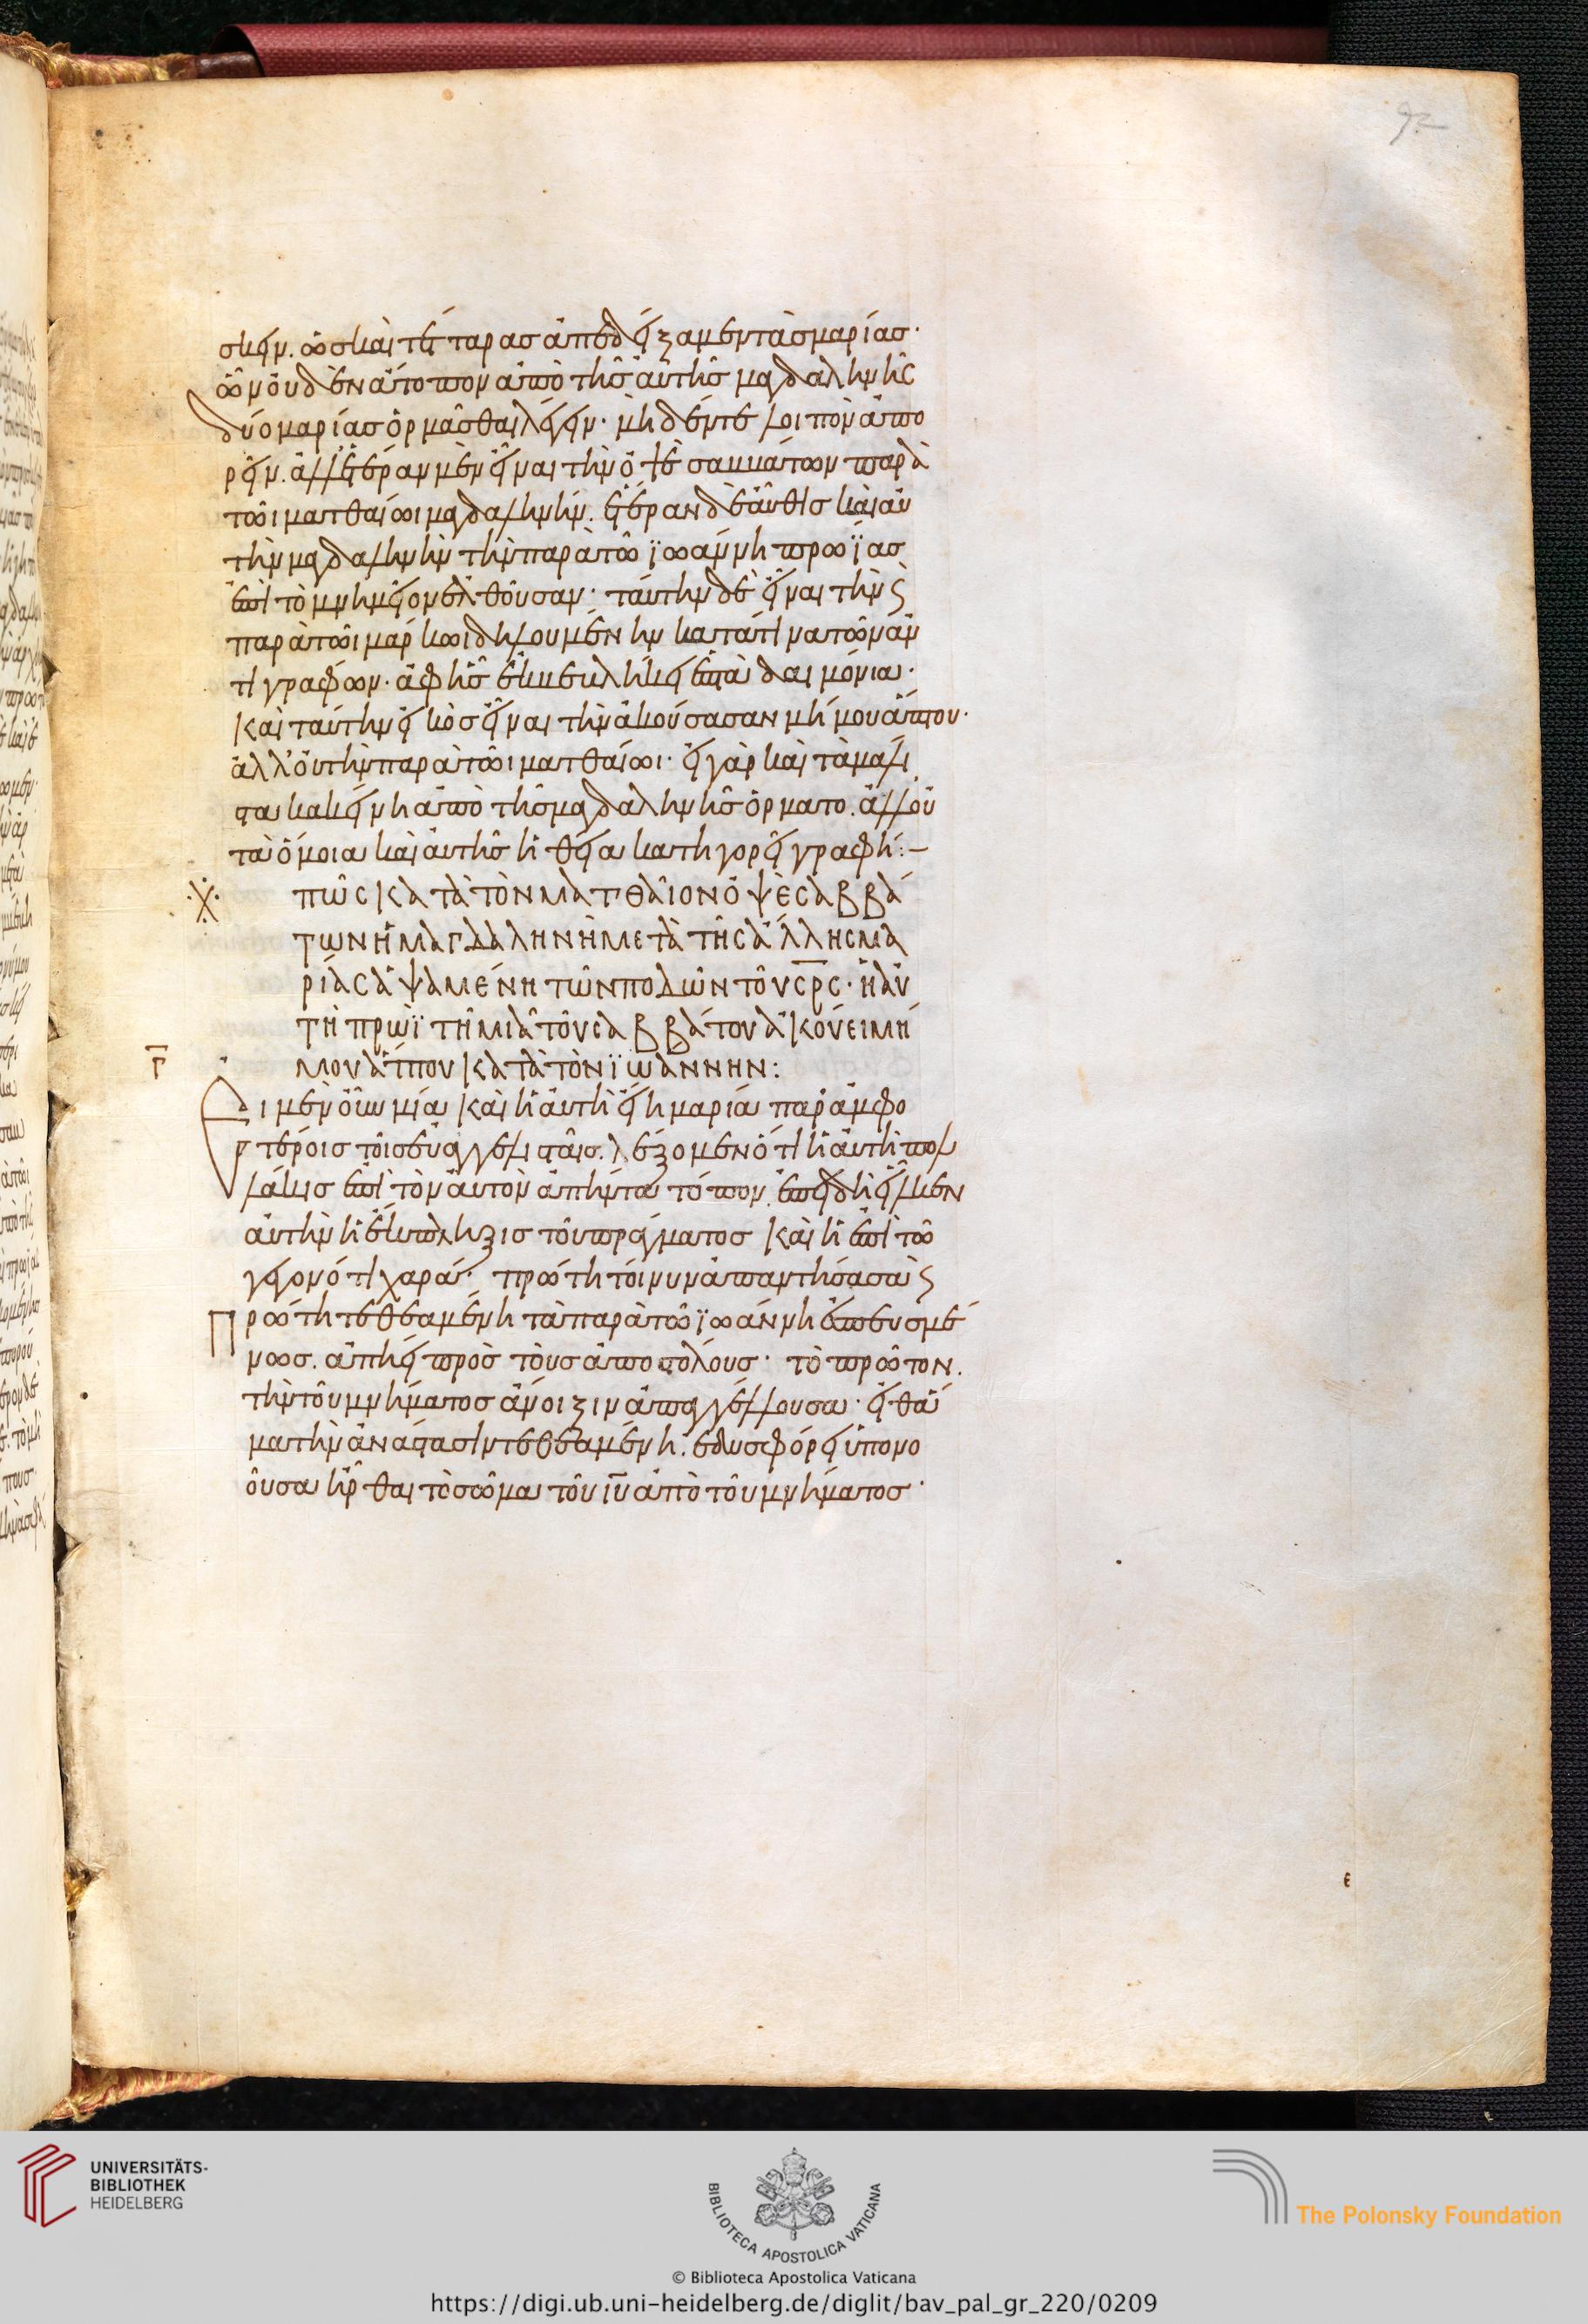 92
σκειν. ὡς καὶ τέτταρας ἀπεδείξαμεν τὰς μαρίας·
ὧν οὐδὲν ἄτοπον ἀπὸ τῆς αὐτῆς μαγδαληνῆς
δύο μαρίας ὁρμᾶσθαι λέγειν· μηδέν τε λοιπὸν ἀπο
ρεῖν. ἀλλ' ἑτέραν μὲν εἶναι τὴν ὀψὲ σαββάτων παρὰ
τῶι ματθαίωι μαγδαληνήν. ἑτέραν δὲ αὖθις καὶ αὐ
τὴν μαγδαληνὴν τὴν παρὰ τῶ ϊωάννη πρωΐας
ἐπὶ τὸ μνημεῖον ἐλθοῦσαν· ταύτην δὲ εἶναι τὴν ϛ
παρὰ τῶι μάρκωι δηλουμένην κατά τινα τῶν ἀν
τιγράφων· ἀφ' ἧς ἐκβεβλήκει ἑπτὰ δαιμόνια·
καὶ ταύτην εἰκὸς εἶναι τὴν ἀκούσασαν μή μου ἅπτου·
ἀλλ' οὐ τὴν παρὰ τῶι ματθαίωι· εἰ γὰρ καὶ τὰ μάλι
στα κἀκείνη ἀπὸ τῆς μαγδαληνῆς ὁρμᾶτο. ἀλλ' οὐ
τὰ ὅμοια καὶ αὐτῆς ἡ θεία κατηγορεῖ γραφή:–
πῶς κατὰ τὸν ματθαῖον ὀψὲ σαββά
των ἡ μαγδαληνὴ μετὰ τῆς ἄλλης μα
ρίας ἁψαμένη τῶν ποδῶν τοῦ σρς· ἡ αὐ
τὴ πρωῒ τῆ μιᾶ τοῦ σαββάτου ἀκούει μή
μου ἅπτου κατὰ τὸν ϊωάννην:
γ
Εἰ μὲν οὖν μία καὶ ἡ αὐτὴ εἴη μαρία παρ' ἀμφο
τέροις τοῖς εὐαγγελισταῖς. λέξομεν ὅτι ἡ αὐτὴ πολ
λάκις ἐπὶ τὸν αὐτὸν ἀπήντα τόπον. ἐπειδὴ εἷλκεν
αὐτὴν ἡ ἔκπληξις τοῦ πράγματος καὶ ἡ ἐπὶ τῶ
γεγονότι χαρά· πρώτη τοίνυν ἀπαντήσασα ϛ
Πρώτη τεθεαμένη τὰ παρὰ τῶ ϊωάννη ἐπευσμέ
νως. ἀπήει πρὸς τοὺς ἀποστόλους· τὸ πρῶτον.
τὴν τοῦ μνήματος ἄνοιξιν ἀπαγγέλλουσα· εἶθ' ἅ
μα τὴν ἀνάστασιν τεθεαμένη. ἐδυσφόρει ὑπονο
οῦσα ἦρθαι τὸ σῶμα τοῦ ιυ ἀπὸ τοῦ μνήματος·
ε
UNIVERSITÄTS-
BIBLIOTHEK
HEIDELBERG
BIBLIOTECA APOSTOLICA VATICANA
The Polonsky Foundation
© Biblioteca Apostolica Vaticana
https://digi.ub.uni-heidelberg.de/diglit/bav_pal_gr_220/0209